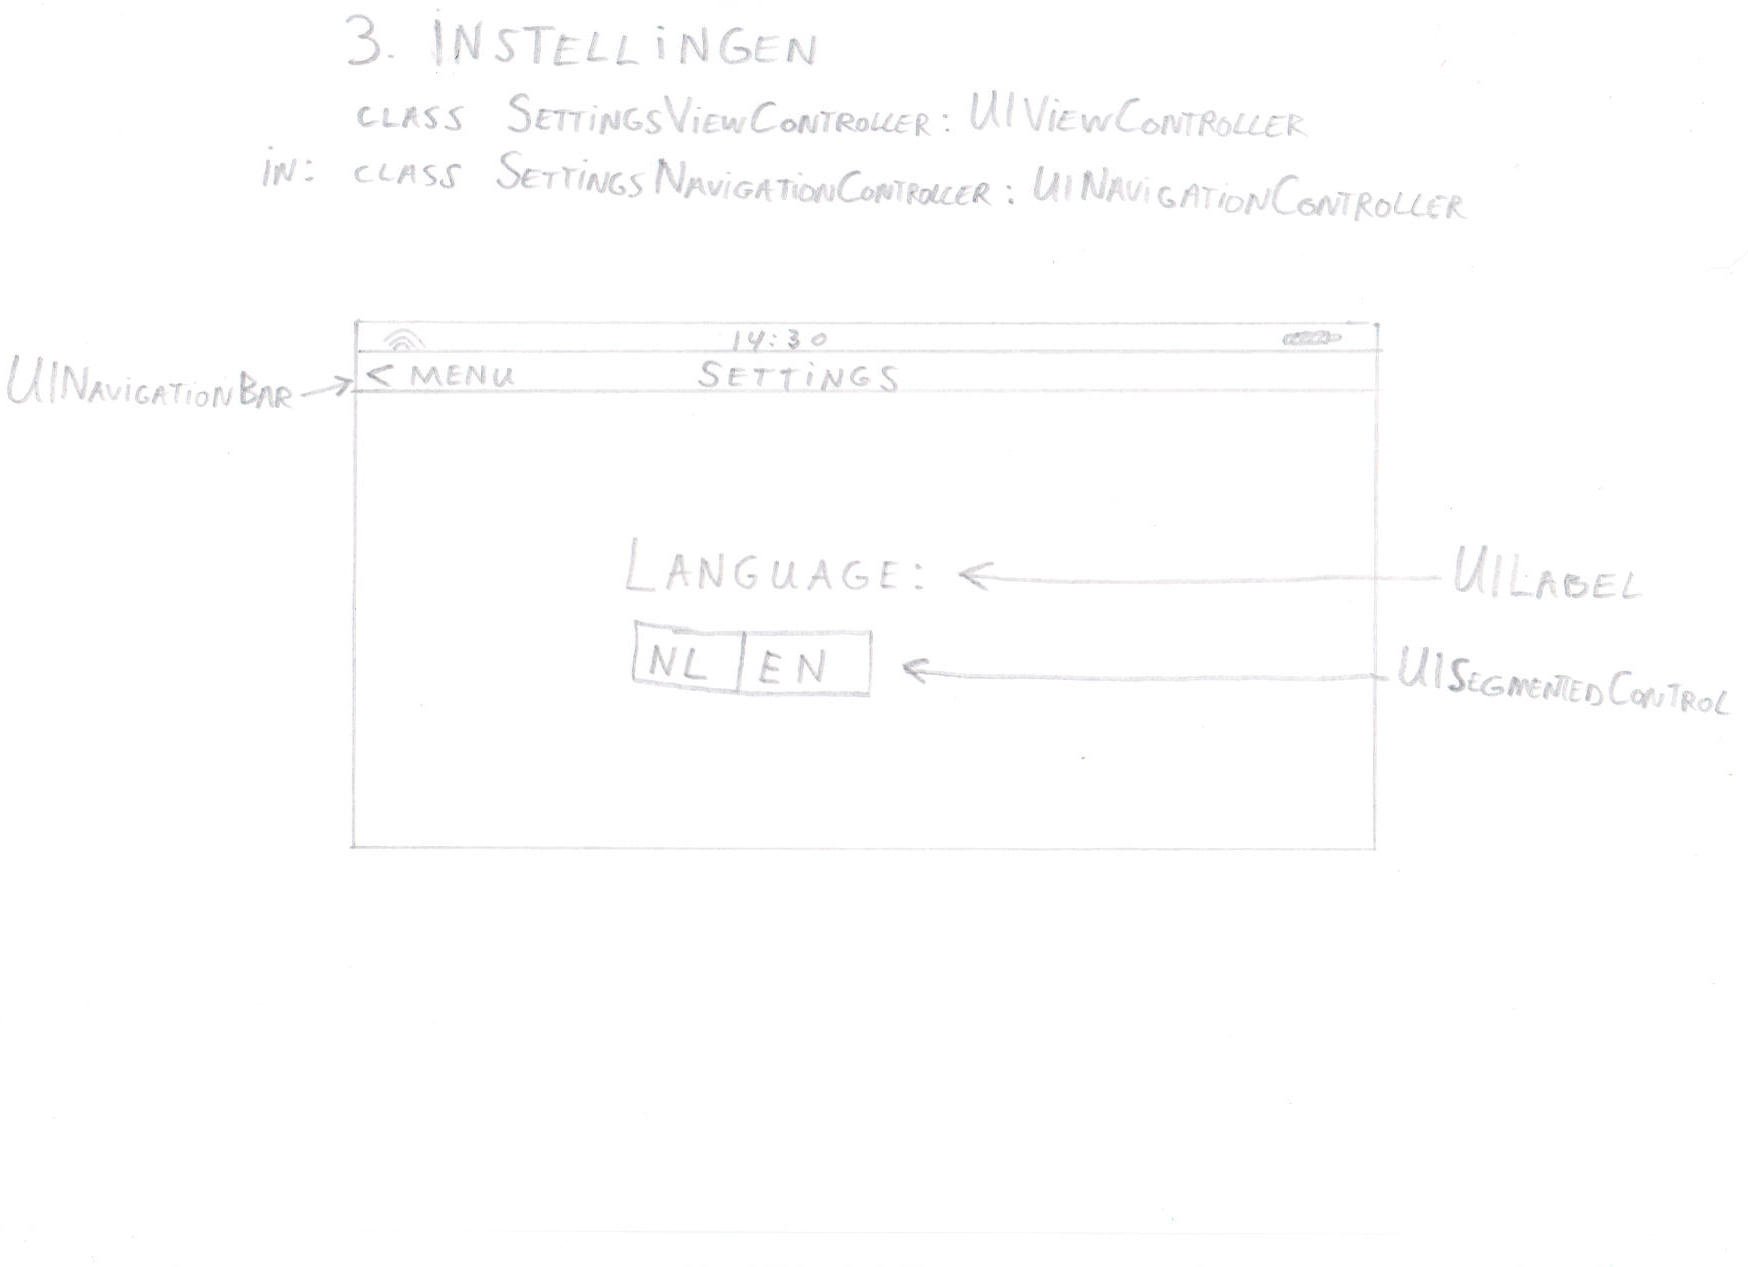 3. INSTELLINGEN
CLASS SETTINGSVIEWCONTROLLER: UIVIEWCONTROLLER
IN: CLASS SETTINGSNAVIGATIONCONTROLLER: UINAVIGATIONCONTROLLER
14:30
UINAVIGATIONBAR
< MENU SETTINGS
LANGUAGE:
UILABEL
NL EN
UISEGMENTEDCONTROL